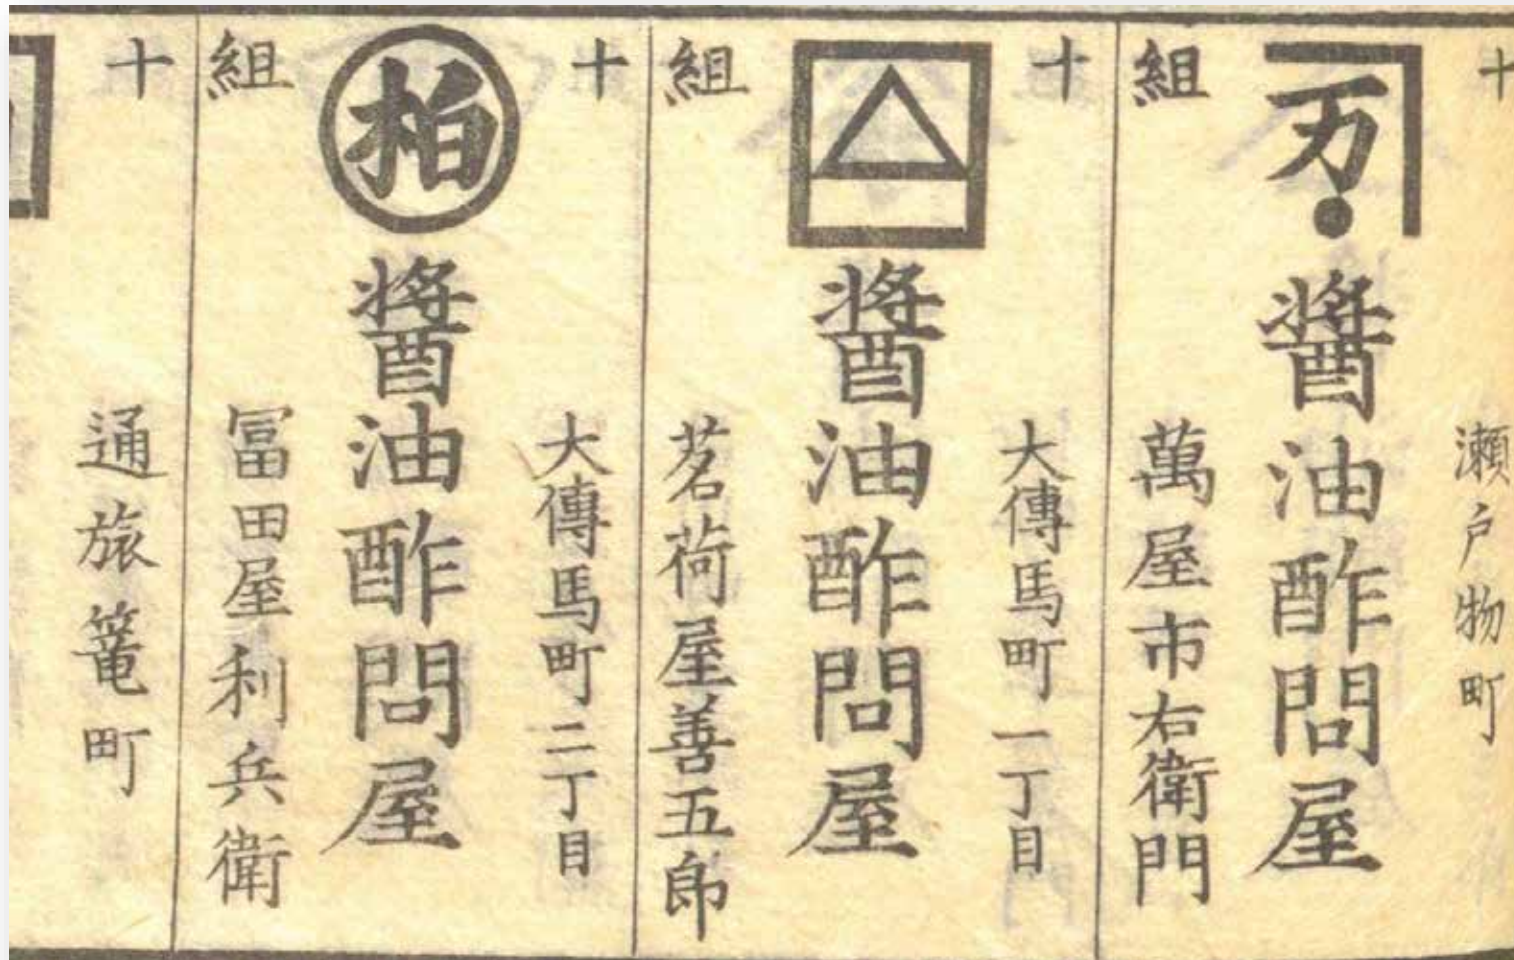 十
組
万
瀬戸物町
醤油酢問屋
萬屋市右衛門
十
組
大傳馬町一丁目
醤油酢問屋
茗荷屋善五郎
十
組
柏
大傳馬町二丁目
醤油酢問屋
冨田屋利兵衛
十
通旅篭町